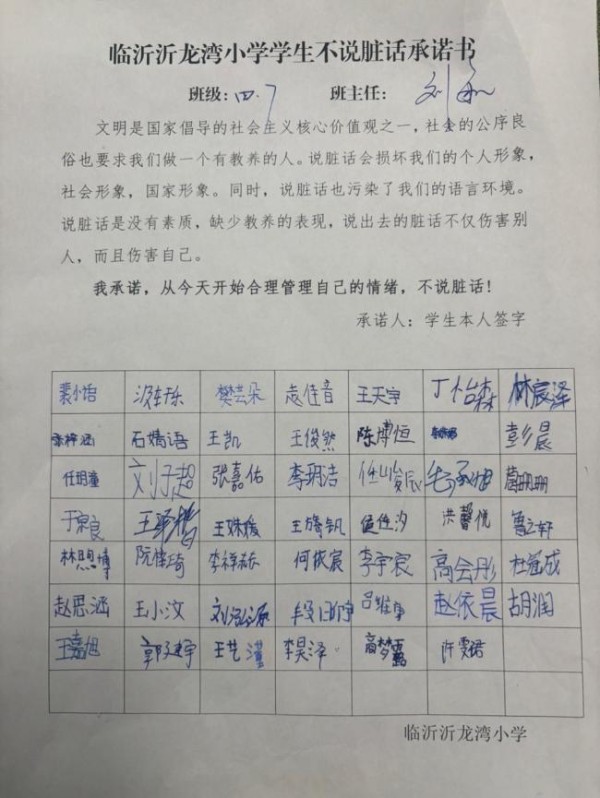 临沂沂龙湾小学学生不说脏话承诺书
班级:四.7 班主任:
文明是国家倡导的社会主义核心价值观之一,社会的公序良
俗也要求我们做一个有教养的人。说脏话会损坏我们的个人形象,
社会形象,国家形象。同时,说脏话也污染了我们的语言环境。
说脏话是没有素质,缺少教养的表现,说出去的脏话不仅伤害别
人,而且伤害自己。
我承诺,从今天开始合理管理自己的情绪,不说脏话!
承诺人:学生本人签字
裴小怡 樊芸朵 王天宇 丁怡森 林宸泽
石嫣语 王凯 王俊然 陈博恒 彭晨
任玥童 刘子超 张嘉佑 李玥洁 任峻辰
于景良 王姝媛 洪馨悦
林思博 阮佳琦 何振宸 李宇宸 高会彤
赵思涵 王小汶 刘泓源 赵依晨 胡润
王嘉旭 王艺瑾 李昊泽 高梦露 许雯珺
临沂沂龙湾小学